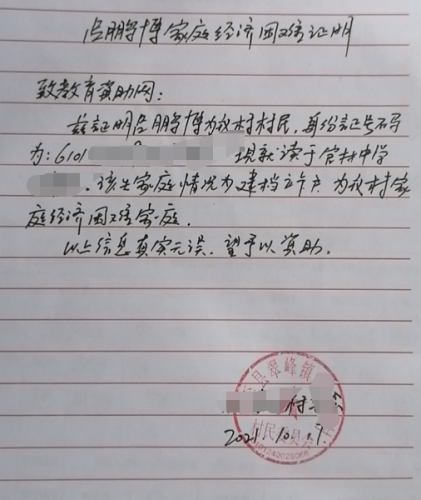 占鹏博家庭经济困难证明
致教育资助网:
兹证明占鹏博为我村村民,身份证号码
为:6101 现就读于官村中学
。该生家庭情况为建档立卡户 为我村家
庭经济困难家庭.
以上信息真实无误.望予以资助.
县翠峰镇
村
村民委员会
2021.10.9.